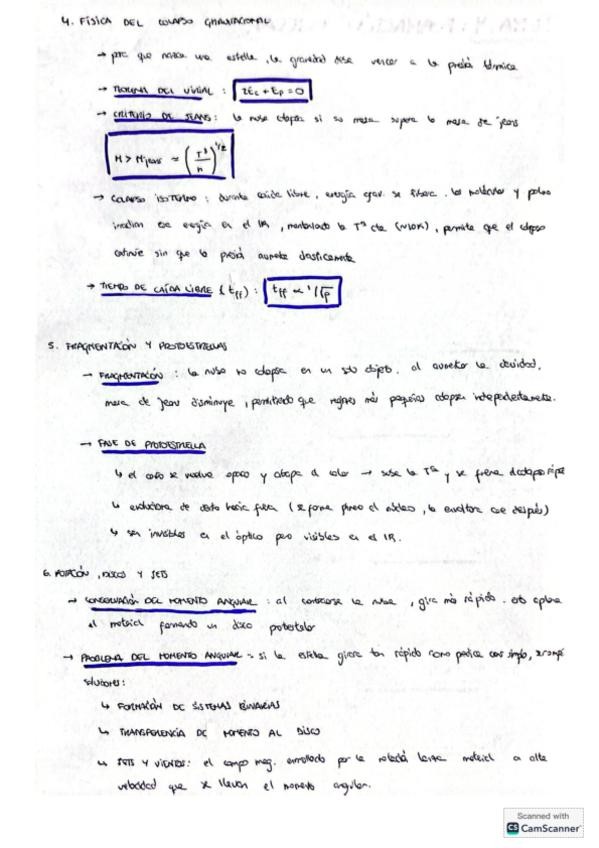 4. FÍSICA DEL COLAPSO GRAVITACIONAL
→ para que nazca una estrella, la gravedad debe vencer a la presión térmica
→ TEOREMA DEL VIRIAL : 2Ec + Ep = 0
→ CRITERIO DE JEANS: la nube colapsa si su masa supera la masa de jeans
M > Mjeans ≈ (T³/n)^1/2
→ COLAPSO ISOTERMO : durante caída libre, energía grav. se libera. las moléculas y polvo
irradian esa energía en el IR, manteniendo la Tª cte (~10K), permite que el colapso
continúe sin que la presión aumente drásticamente
→ TIEMPO DE CAÍDA LIBRE (tff) : tff ∝ 1/√ρ
5. FRAGMENTACIÓN Y PROTOESTRELLAS
→ FRAGMENTACIÓN : la nube no colapsa en un solo objeto. al aumentar la densidad,
masa de jeans disminuye, permitiendo que regiones más pequeñas colapsen independientemente.
→ FASE DE PROTOESTRELLA
↳ el core se vuelve opaco y atrapa el calor → sube la Tª y se frena el colapso
↳ evoluciona de dentro hacia fuera (se forma primero el núcleo, la envoltura cae después)
↳ son invisibles en el óptico pero visibles en el IR.
6. ROTACIÓN, DISCOS Y JETS
→ CONSERVACIÓN DEL MOMENTO ANGULAR : al contraerse la nube, gira más rápido. esto aplana
el material formando un disco protoestelar
→ PROBLEMA DEL MOMENTO ANGULAR = si la estrella girara tan rápido como predice cons simple, se rompe
soluciones:
↳ FORMACIÓN DE SISTEMAS BINARIAS
↳ TRANSFERENCIA DE MOMENTO AL DISCO
↳ JETS Y VIENTOS: el campo mag. enrollado por la rotación lanza material a alta
velocidad que se llevan el momento angular.
Scanned with
CS CamScanner